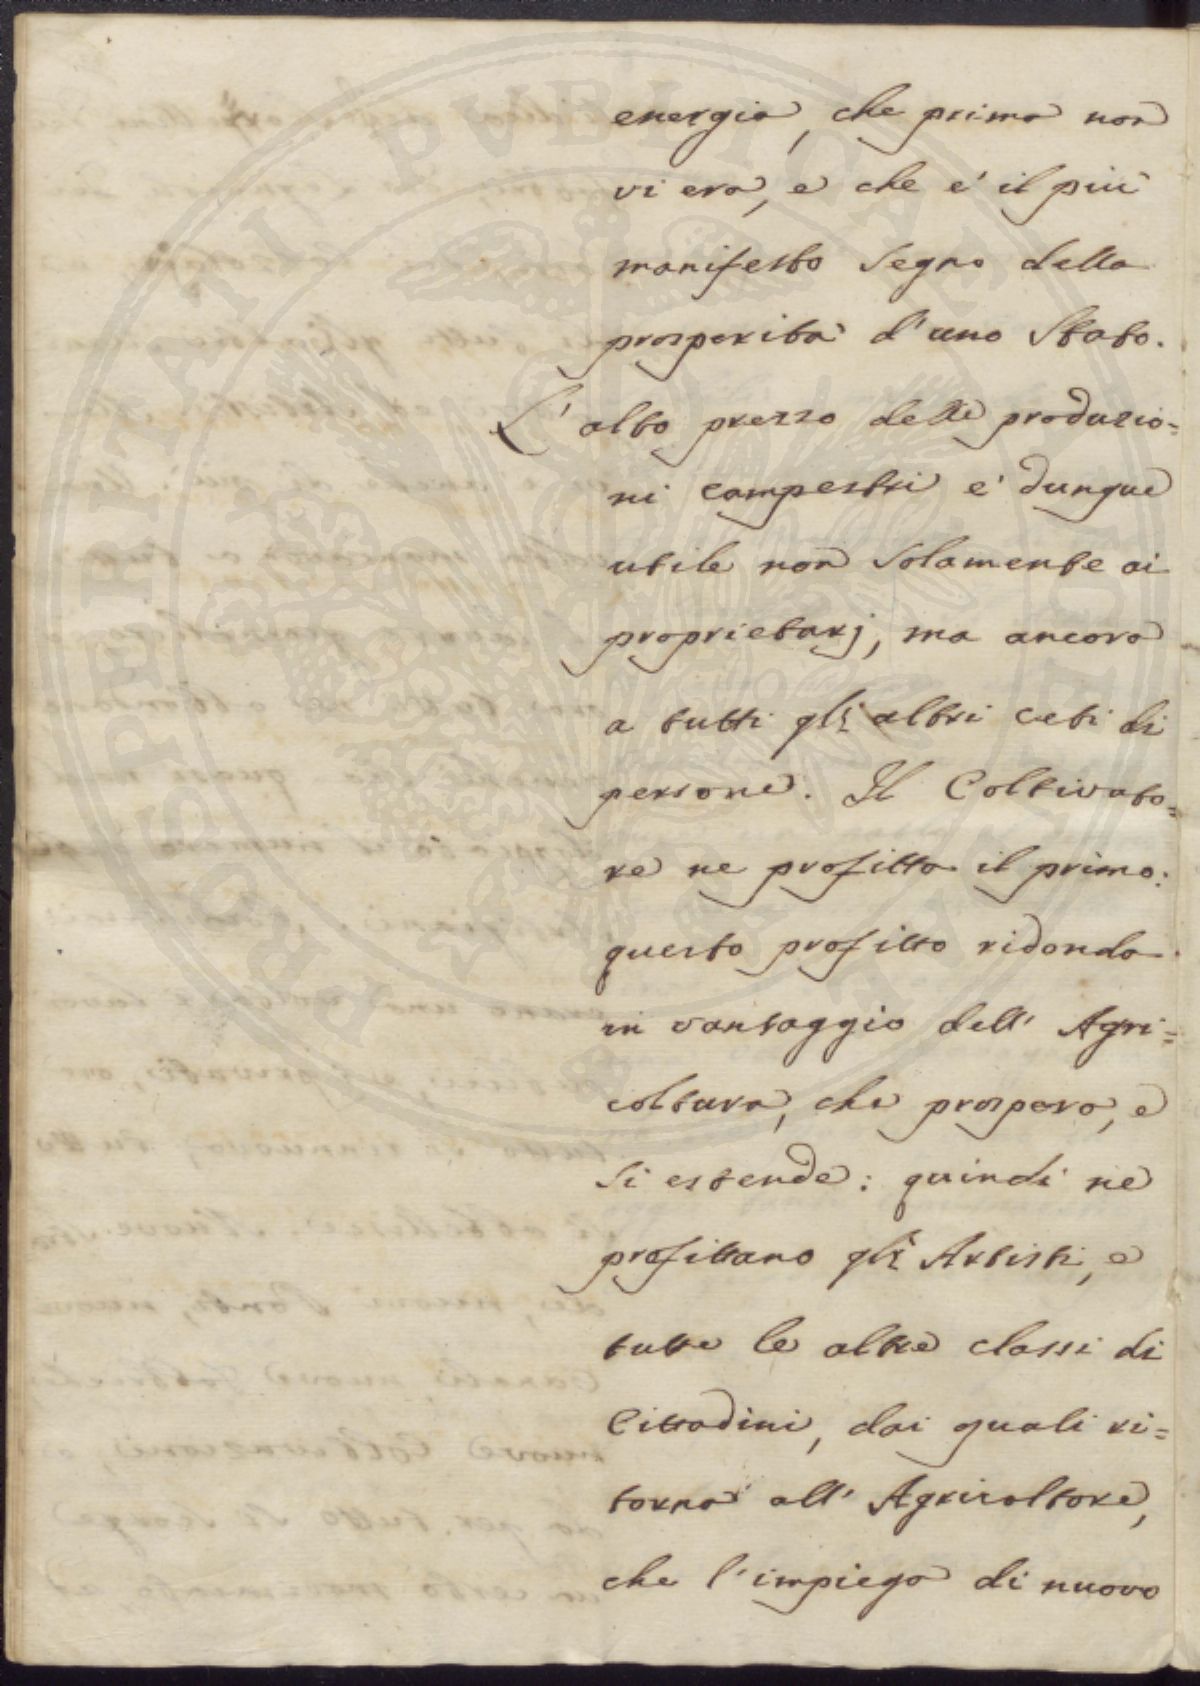 energia, che prima non
vi era, e che e' il più
manifesto Segno della
prosperità d'uno Stato.
L'alto prezzo delle produzio=
ni campestri e' dunque
utile non Solamente ai
proprietarj, ma ancora
a tutti gli altri ceti di
persone. Il Coltivato=
re ne profitta il primo:
questo profitto ridonda
in vantaggio dell' Agri=
coltura, che prospera, e
Si estende: quindi ne
profittano gli Artisti, e
tutte le altre classi di
Cittadini, dai quali ri=
torna all' Agricoltore,
che l'impiega di nuovo
PROSPERITATI PVBLICAE